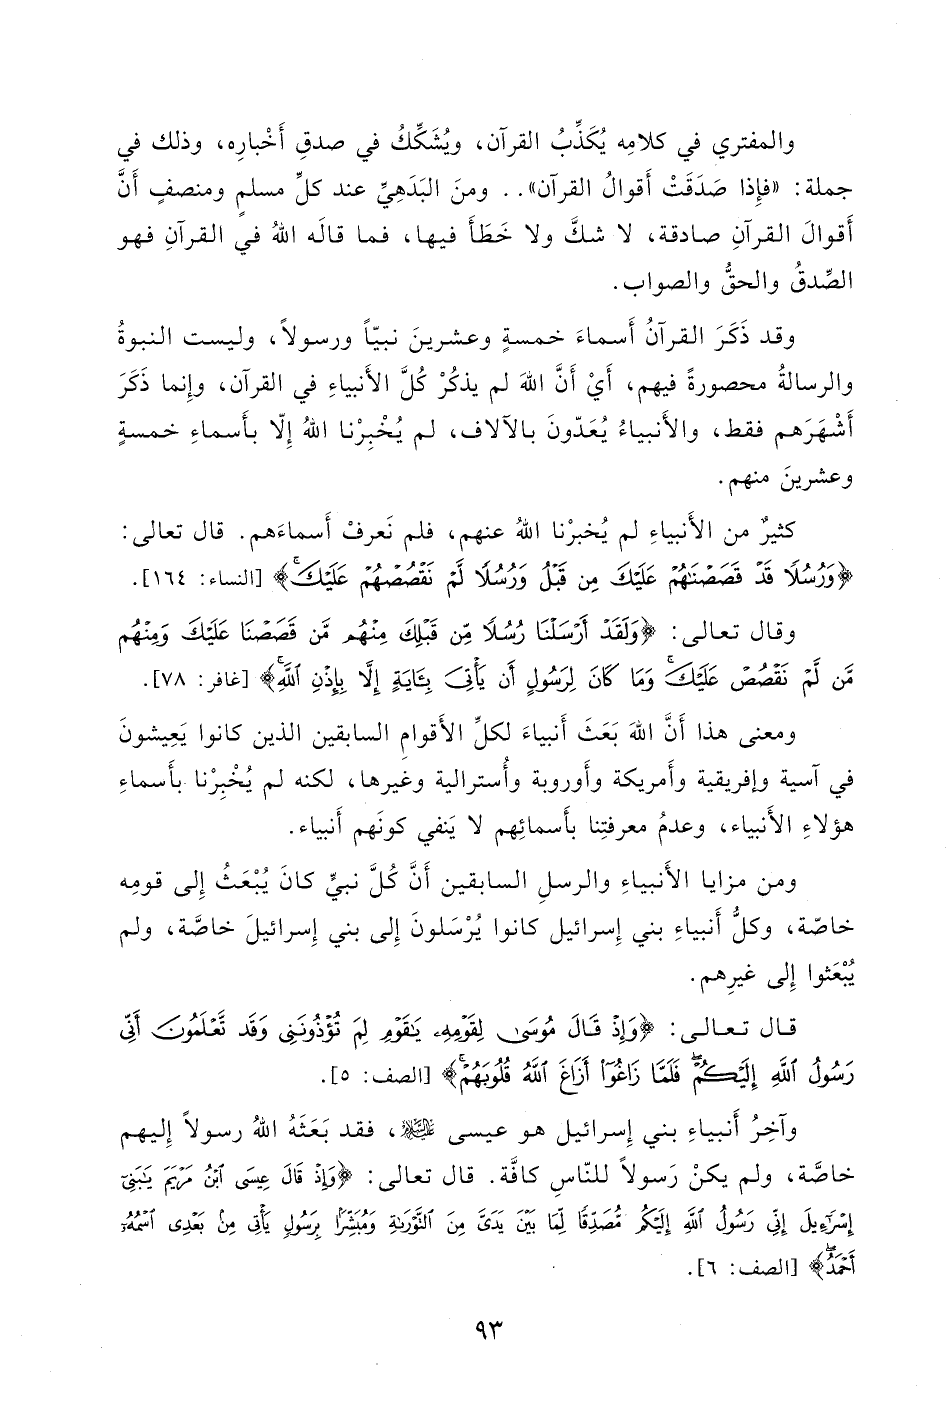 والمفتري في كلامِه يُكَذِّبُ القرآن، ويُشَكِّكُ في صدقِ أَخْبارِه، وذلك في
جملة: «فإِذا صَدَقَتْ أَقوالُ القرآن».. ومنَ البَدَهِيِّ عند كلِّ مسلمٍ ومنصفٍ أَنَّ
أَقوالَ القرآنِ صادقة، لا شكَّ ولا خَطَأَ فيها، فما قالَه اللهُ في القرآنِ فهو
الصِّدقُ والحقُّ والصواب.
وقد ذَكَرَ القرآنُ أَسماءَ خمسةٍ وعشرينَ نبيّاً ورسولاً، وليست النبوةُ
والرسالةُ محصورةً فيهم، أَيْ أَنَّ اللهَ لم يذكُرْ كُلَّ الأَنبياءِ في القرآن، وإِنما ذَكَرَ
أَشْهَرَهم فقط، والأَنبياءُ يُعَدّونَ بالآلاف، لم يُخْبِرْنا اللهُ إِلّا بأَسماءِ خمسةٍ
وعشرينَ منهم.
كثيرٌ من الأَنبياءِ لم يُخبرْنا اللهُ عنهم، فلم نَعرفْ أَسماءَهم. قال تعالى:
﴿وَرُسُلًا قَدْ قَصَصْنَٰهُمْ عَلَيْكَ مِن قَبْلُ وَرُسُلًا لَّمْ نَقْصُصْهُمْ عَلَيْكَ ۚ﴾ [النساء: ١٦٤].
وقال تعالى: ﴿وَلَقَدْ أَرْسَلْنَا رُسُلًا مِّن قَبْلِكَ مِنْهُم مَّن قَصَصْنَا عَلَيْكَ وَمِنْهُم
مَّن لَّمْ نَقْصُصْ عَلَيْكَ ۗ وَمَا كَانَ لِرَسُولٍ أَن يَأْتِىَ بِـَٔايَةٍ إِلَّا بِإِذْنِ ٱللَّهِ ۚ﴾ [غافر: ٧٨].
ومعنى هذا أَنَّ اللهَ بَعَثَ أَنبياءَ لكلِّ الأَقوامِ السابقين الذين كانوا يَعِيشونَ
في آسية وإفريقية وأَمريكة وأَوروبة وأُسترالية وغيرها، لكنه لم يُخْبِرْنا بأَسماءِ
هؤلاءِ الأَنبياء، وعدمُ معرفتِنا بأَسمائِهم لا يَنفي كونَهم أَنبياء.
ومن مزايا الأَنبياءِ والرسلِ السابقين أَنَّ كُلَّ نبيٍّ كانَ يُبْعَثُ إِلى قومِه
خاصّة، وكلُّ أَنبياءِ بني إِسرائيل كانوا يُرْسَلونَ إِلى بني إِسرائيلَ خاصَّة، ولم
يُبْعَثوا إِلى غيرِهم.
قال تعالى: ﴿وَإِذْ قَالَ مُوسَىٰ لِقَوْمِهِۦ يَٰقَوْمِ لِمَ تُؤْذُونَنِى وَقَد تَّعْلَمُونَ أَنِّى
رَسُولُ ٱللَّهِ إِلَيْكُمْ ۖ فَلَمَّا زَاغُوٓا۟ أَزَاغَ ٱللَّهُ قُلُوبَهُمْ ۚ﴾ [الصف: ٥].
وآخِرُ أَنبياءِ بني إِسرائيل هو عيسى عليه السلام، فقد بَعَثَهُ اللهُ رسولاً إِليهم
خاصَّة، ولم يكنْ رَسولاً للنّاسِ كافَّة. قال تعالى: ﴿وَإِذْ قَالَ عِيسَى ٱبْنُ مَرْيَمَ يَٰبَنِىٓ
إِسْرَٰٓءِيلَ إِنِّى رَسُولُ ٱللَّهِ إِلَيْكُم مُّصَدِّقًا لِّمَا بَيْنَ يَدَىَّ مِنَ ٱلتَّوْرَىٰةِ وَمُبَشِّرًۢا بِرَسُولٍ يَأْتِى مِنۢ بَعْدِى ٱسْمُهُۥٓ
أَحْمَدُ ۖ﴾ [الصف: ٦].
٩٣